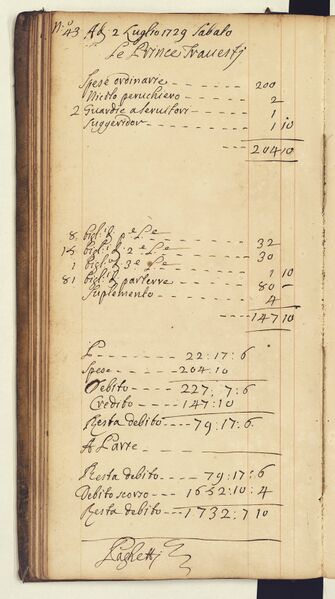 N.o 43 Ad 2 Luglio 1729 Sabato
Le Prince Travesti
Spese ordinarie ---- 200
Nicolo peruchiero ---- 2
2 Guardie a servitori ---- 1
Suggeridor ---- 1 10
--- 204 10
8 bigl: d p.e L.e ---- 32
15 bigl: d 2.e L.e ---- 30
1 bigl: d 3.e L.e ---- 1 10
81 bigl: d parterre ---- 80 -
Suplemento ---- 4
--- 147 10
P ---- 22:17:6
Spese ---- 204:10
Debito ---- 227: 7:6
Credito ---- 147:10
Resta debito --- 79:17:6
A Parte
Resta debito --- 79:17:6
Debito scorso --- 1652:10:4
Resta debito --- 1732:7 10
Paghetti